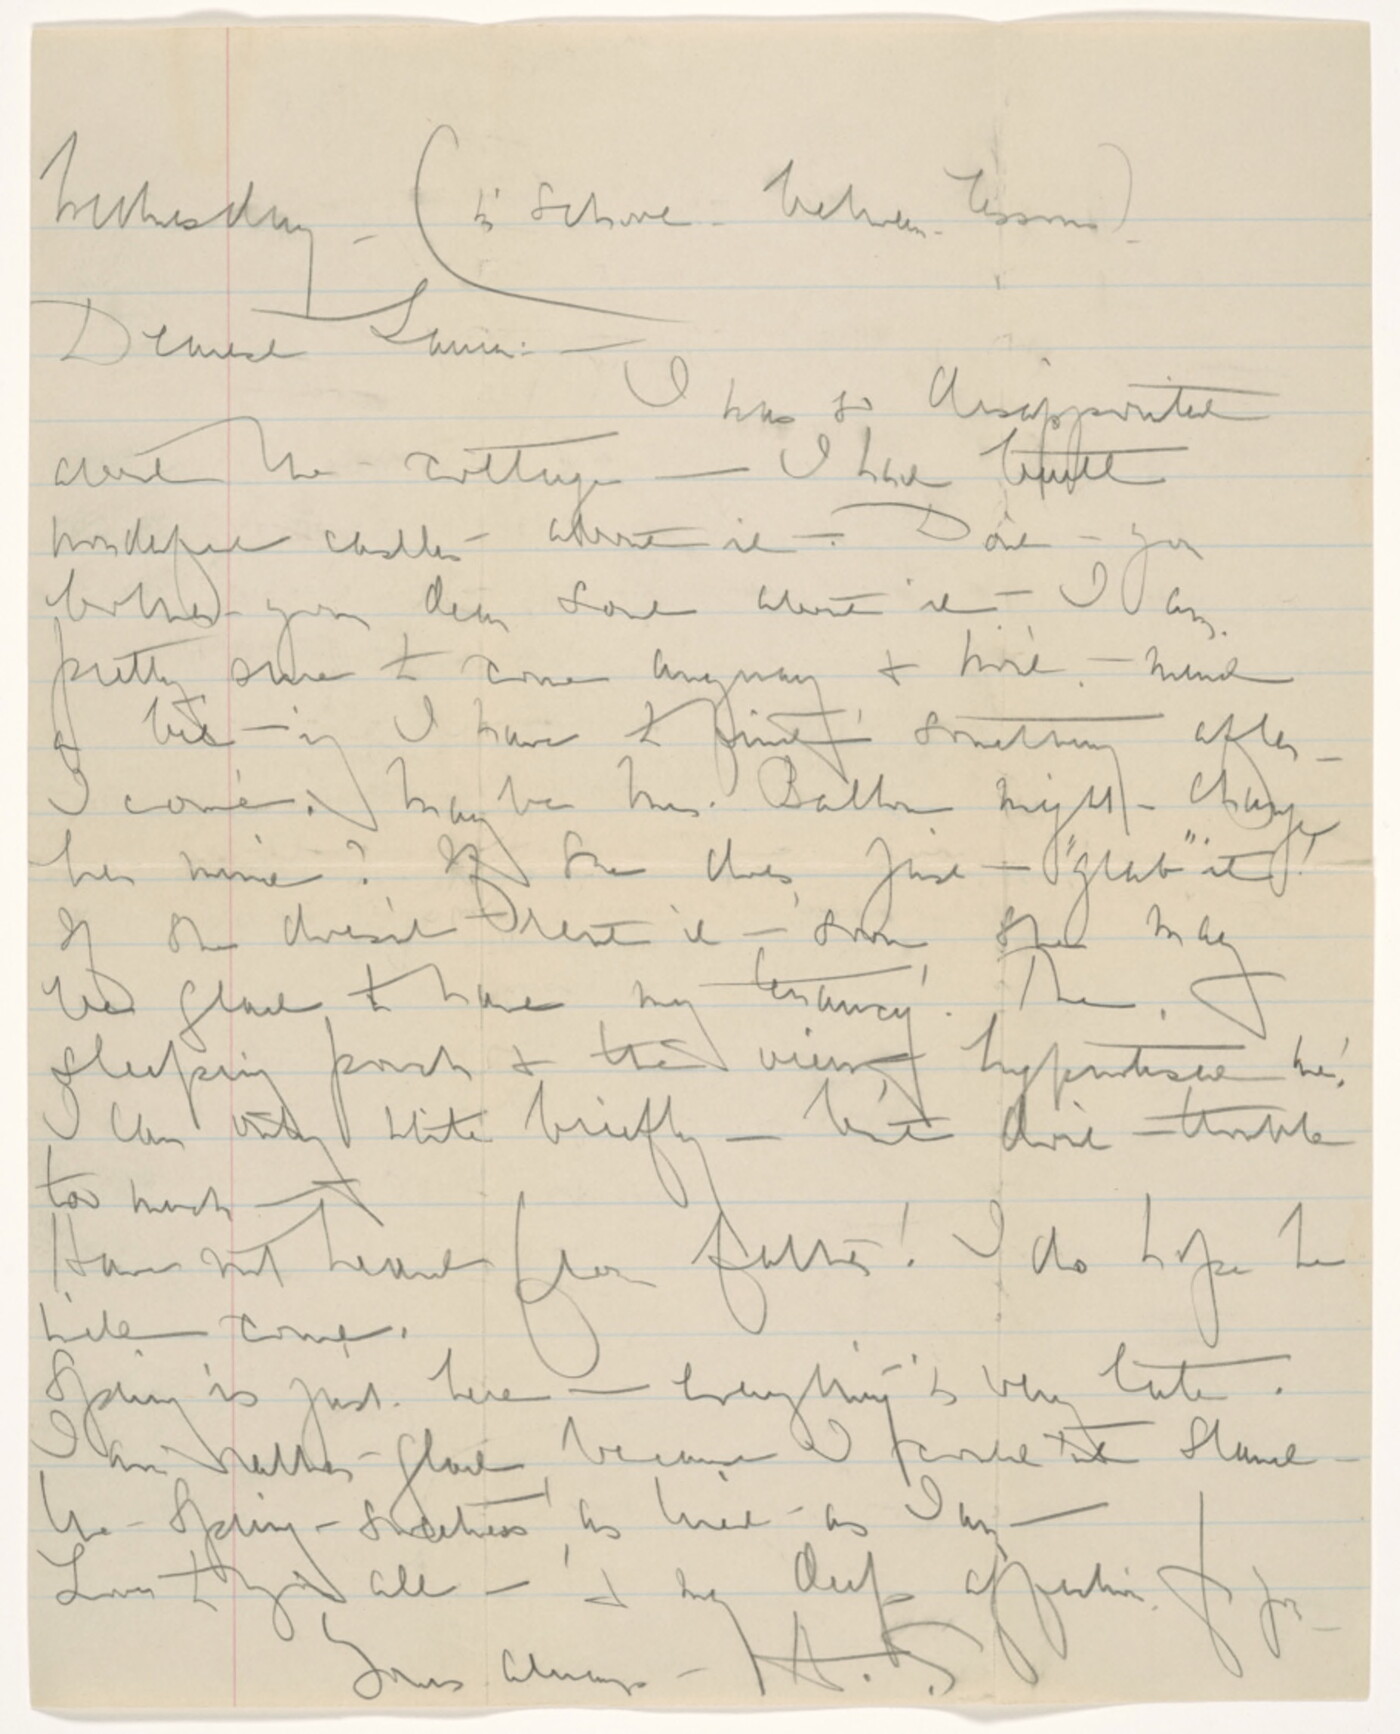 Wednesday - (in School - between lessons) -
Dearest Laura: -
I was so disappointed
about the cottage - I had built
wonderful castles about it -. Don't - you
bother your dear soul about it - I am
pretty sure to come anyway & won't - mind
a bit - if I have to find something after -
I come. Maybe Mrs. Balton might - change
her mind? If she does just - "grab" it!
If she doesn't rent it - soon she may
be glad to have my tenancy! The
sleeping porch & the view hypnotised me!
I can only write briefly - but don't - trouble
too much -
Have not heard from father! I do hope he
will come.
Spring is just here - everything is very late.
I am rather - glad because I couldn't stand -
the - Spring - sweetness as tired - as I am -
Love to you all - & my deep affection to you -
Yours always - A.